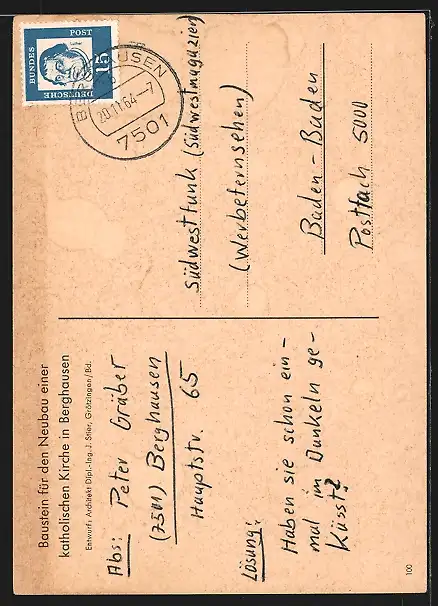 Baustein für den Neubau einer
katholischen Kirche in Berghausen
Entwurf: Architekt Dipl.-Ing. J. Stier, Grötzingen/Bd.
Abs: Peter Gräber
(7501) Berghausen
Hauptstr. 65
Lösung:
Haben sie schon ein-
mal im Dunkeln ge-
küsst?
100
DEUTSCHE
BUNDES
POST
15
BERGHAUSEN
20.11.64-7
7501
Südwestfunk (Südwestmagazien)
(Werbefernsehen)
Baden-Baden
Postfach 5000